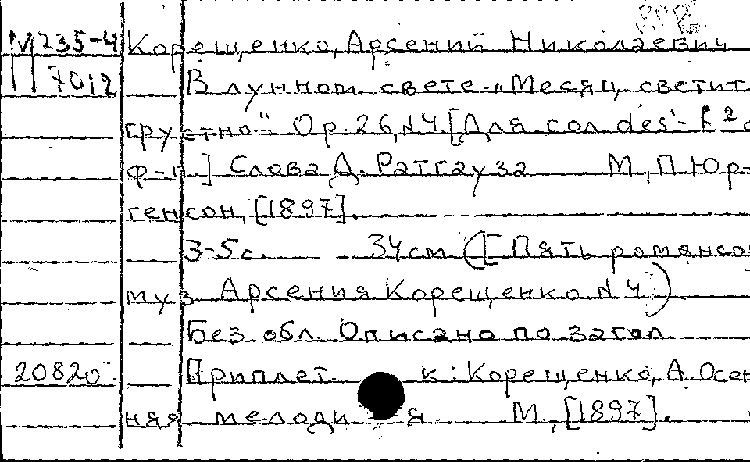 М235-4 Корещенко, Арсений Николаевич
7012 В лунном свете. "Месяц светит
грустно". Ор. 26, N4. [Для сол. des'-f²
ф-п.] Слова Д. Ратгауза М., П. Юр-
генсон, [1897].
3-5 с. 34 см. ([Пять романсов
муз. Арсения Корещенко N 4)
Без обл. Описано по загол.
20820 Приплет. к: Корещенко, А. Осен-
няя мелодия М., [1897].